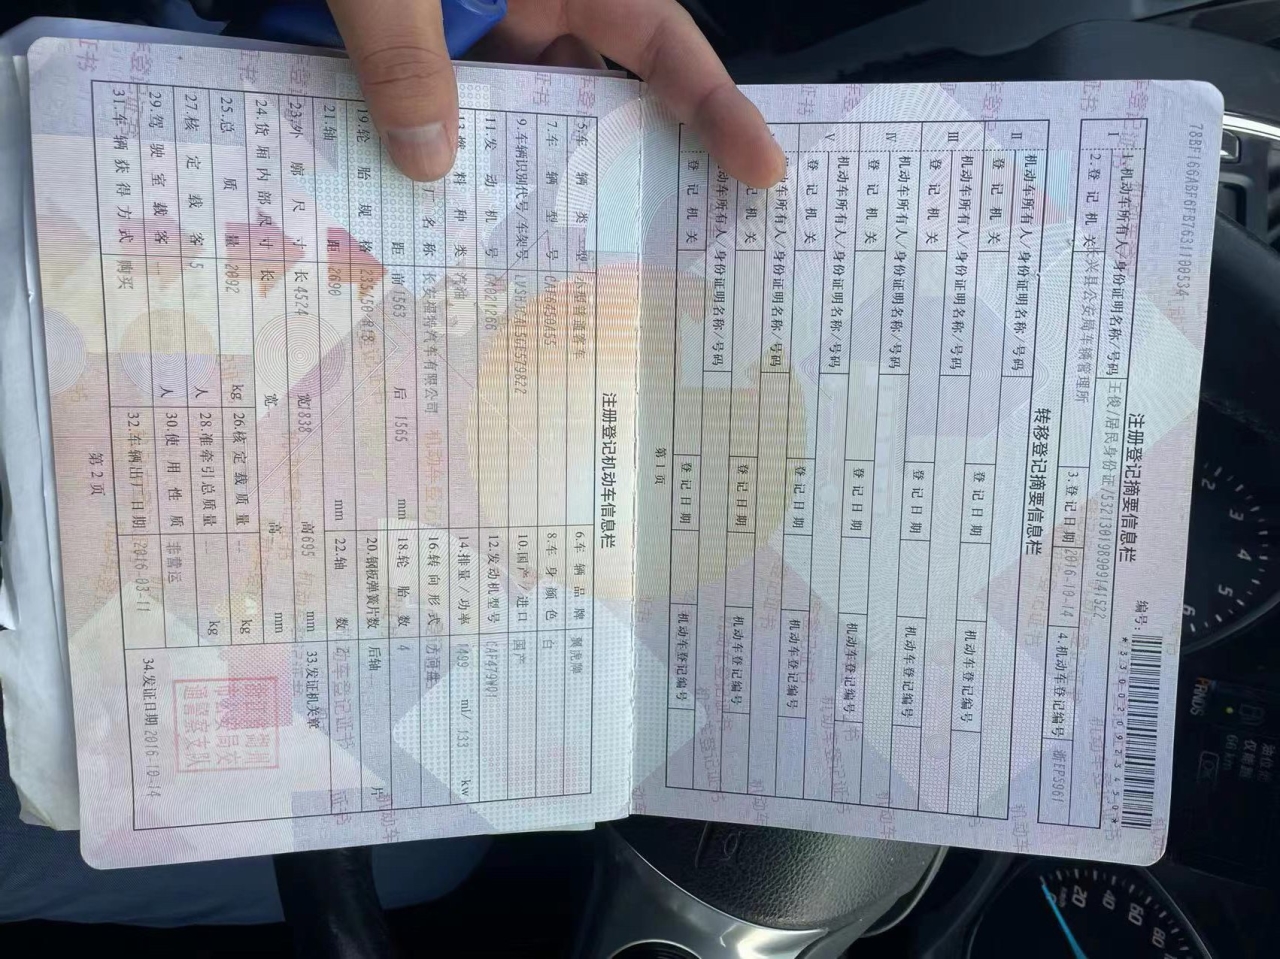 78BF1664BF6FB7631100534
注册登记摘要信息栏
编号:
*330020923450*
Ⅰ 1.机动车所有人/身份证明名称/号码 王俊/居民身份证/532130198909141522
2.登记机关 长兴县公安局车辆管理所 3.登记日期 2016-10-14 4.机动车登记编号 浙EP5961
转移登记摘要信息栏
Ⅱ 机动车所有人/身份证明名称/号码
登记机关 登记日期 机动车登记编号
Ⅲ 机动车所有人/身份证明名称/号码
登记机关 登记日期 机动车登记编号
Ⅳ 机动车所有人/身份证明名称/号码
登记机关 登记日期 机动车登记编号
Ⅴ 机动车所有人/身份证明名称/号码
登记机关 登记日期 机动车登记编号
动车所有人/身份证明名称/号码
记机关 登记日期 机动车登记编号
动车所有人/身份证明名称/号码
登记机关 登记日期 机动车登记编号
第1页
注册登记机动车信息栏
5.车辆类型 小型普通客车 6.车辆品牌 翼虎牌
7.车辆型号 8.车身颜色 白
9.车辆识别代号/车架号 10.国产/进口 国产
11.发动机号 12.发动机型号
料种类 汽油 14.排量/功率 1499 ml/ 133 kw
厂名称 长安福特汽车有限公司 16.转向形式
距 前 1563 后 1565 mm 18.轮胎数 4
19.轮胎规格 235/50 R18 20.钢板弹簧片数 后轴 片
21.轴距 2690 mm 22.轴数
23.外廓尺寸 长 4524 宽 1838 高 695 mm 33.发证机关章
24.货厢内部尺寸 长 宽 高 mm
25.总质量 2092 kg 26.核定载质量 -- kg
27.核定载客 5 人 28.准牵引总质量 kg
29.驾驶室载客 人 30.使用性质 非营运
31.车辆获得方式 购买 32.车辆出厂日期 2016-03-11 34.发证日期 2016-10-14
第2页
2
3
4
5
6
20
40
60
80